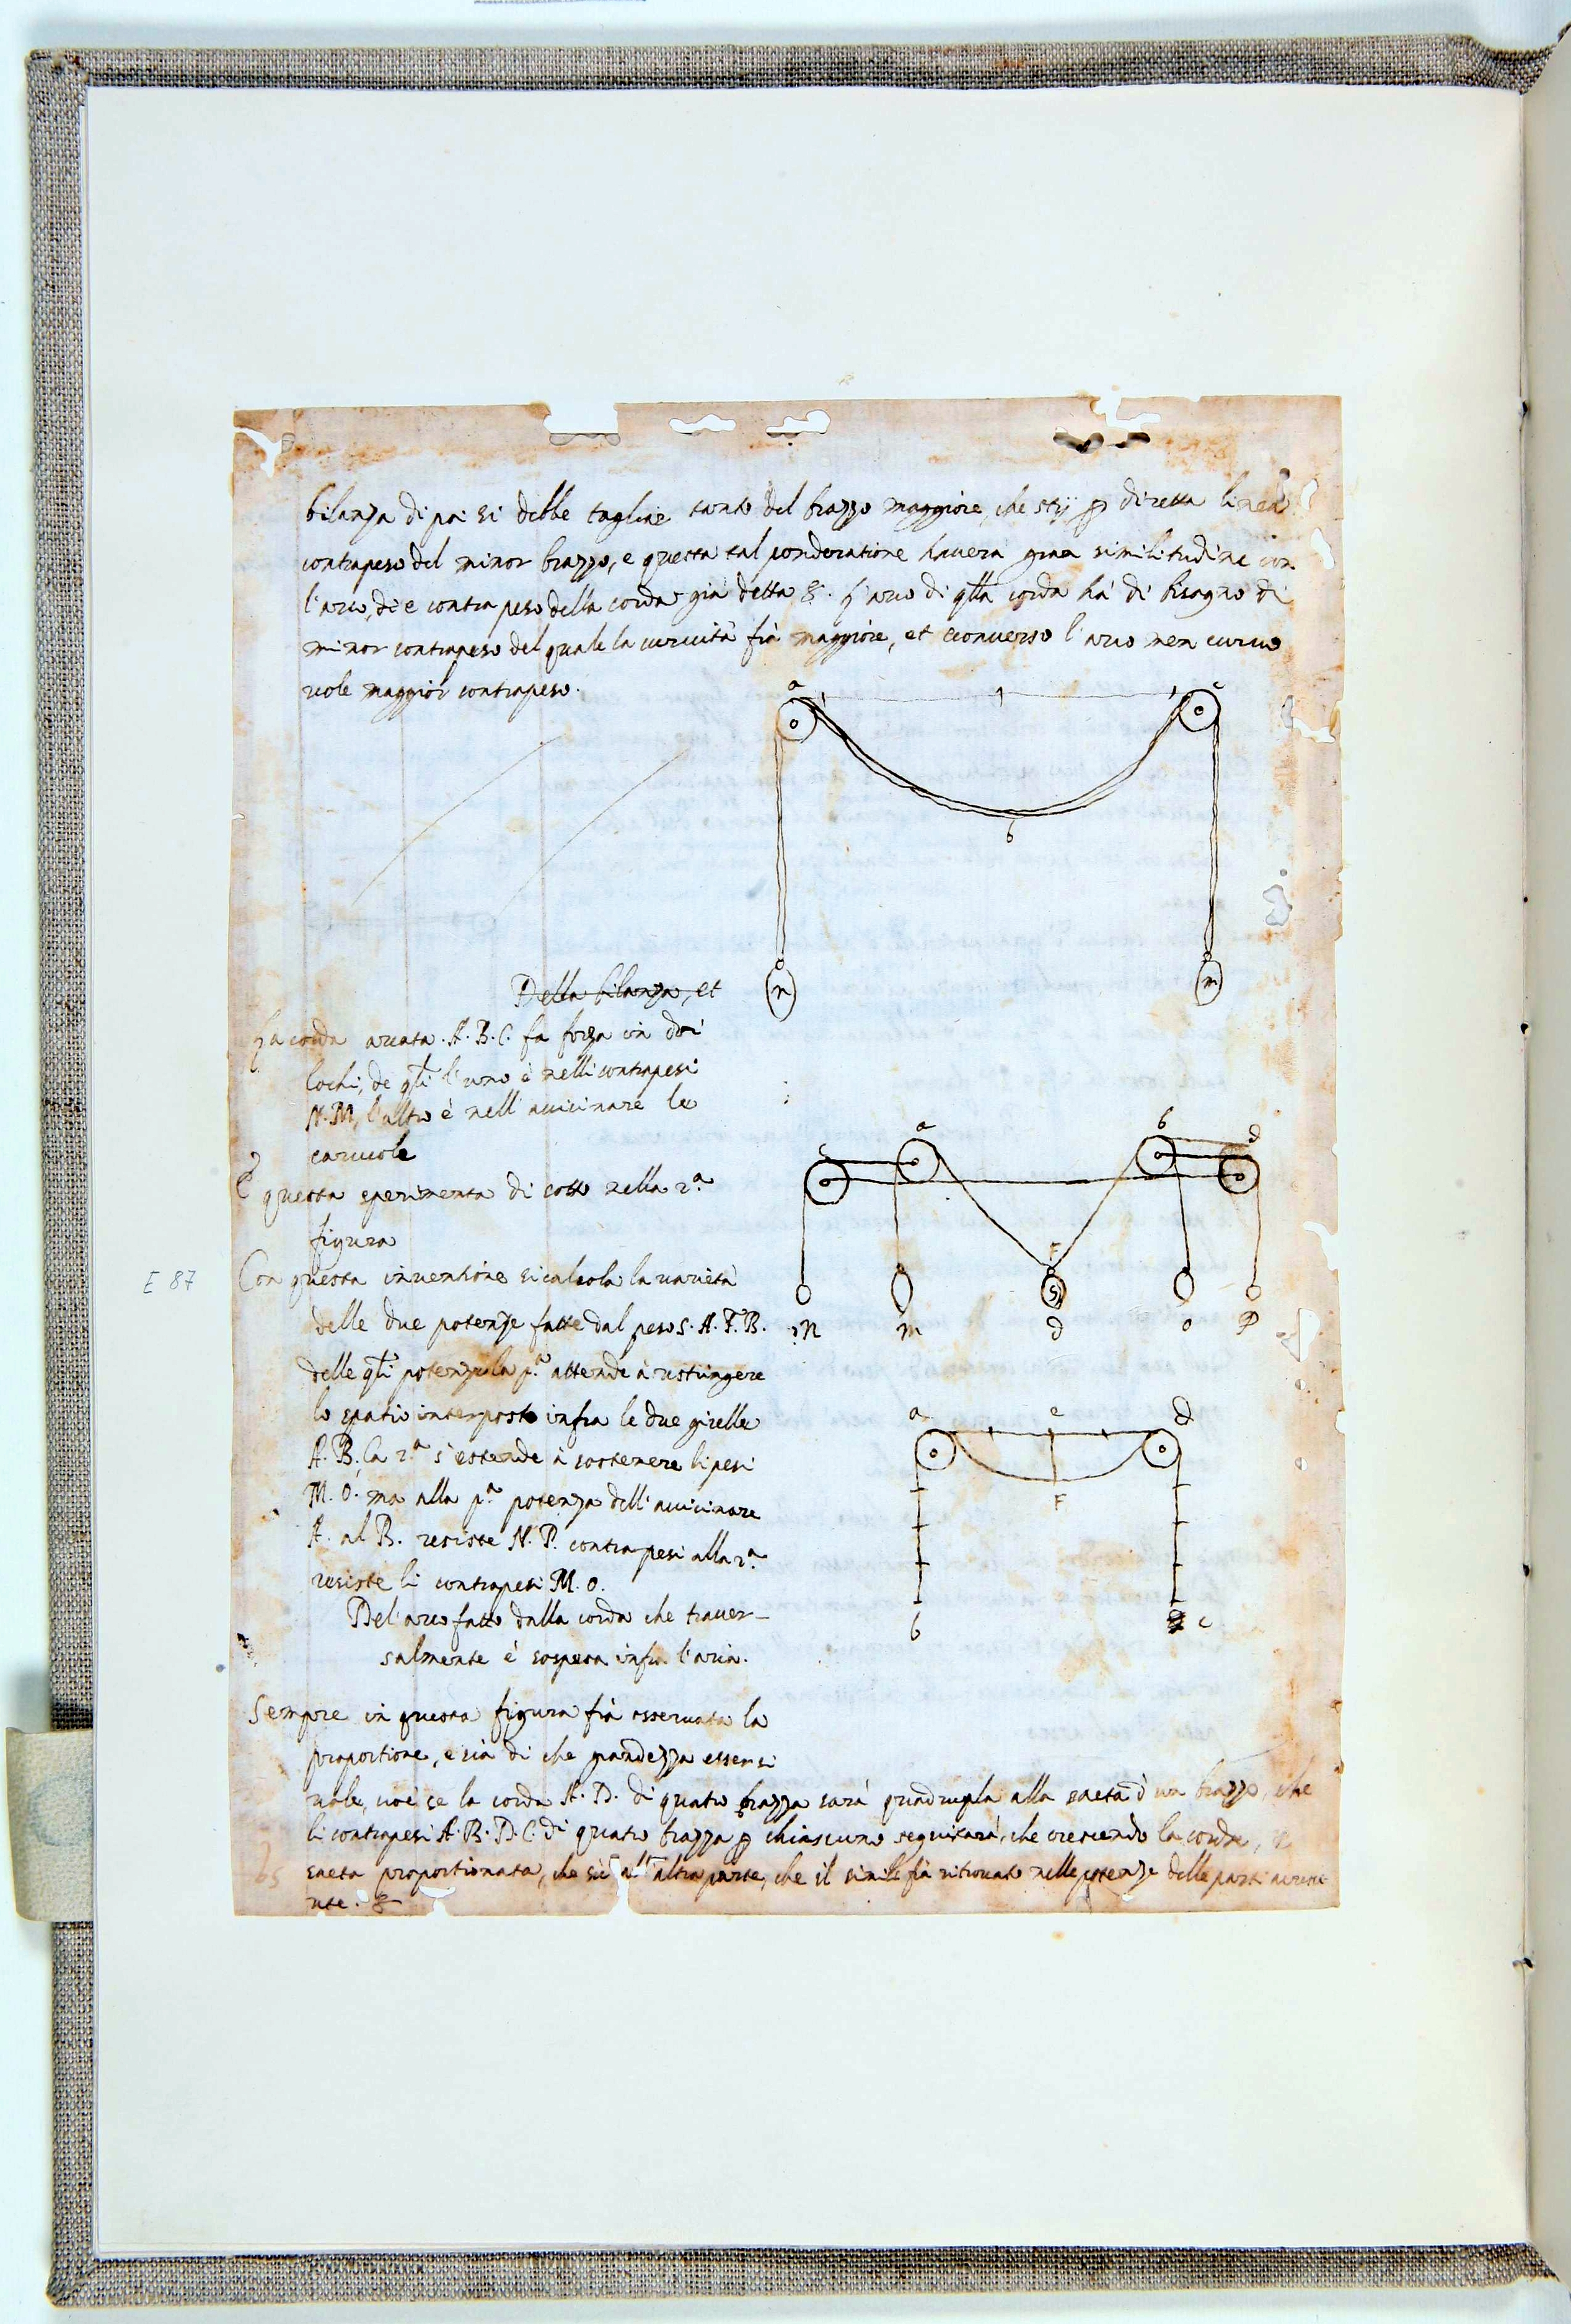 bilanza di poi si debbe tagliare tanto del brazzo maggiore, che stij p diretta linea
contrapeso del minor brazzo, e questa tal ponderatione havera gran similitudine con
l'arco, di e contra peso della corda già detta &. L'arco di qlla corda hà di bisogno di
minor contrapeso del quale la curvità fià maggiore, et econverso l'arco men curvo
vole maggior contrapeso.
a c
b
n m
Della bilanza, et
La corda arcata. A. B. C. fa forza in doi
lochi, de qli l'uno è nelli contrapesi
N. M, l'altro è nell'avicinare le
carucole
E questa sperimenta di sotto nella 2.a
figura
a b
c d
F
S
n m d o P
E 87
Con questa inventione si calcola la varietà
delle due potenze fatte dal peso S. A. F. B.
delle qli potenze la p.a attende à ristringere
lo spatio interposto infra le due girelle
A. B. la 2.a s'estende à sostenere li pesi
M. O. ma alla p.a potenza dell'avicinare
A. al B. resiste N. P. contrapesi alla 2.a
resiste li contrapesi M. O.
a e d
F
b c
Del'arco fatto dalla corda che traver-
salmente è sospesa infra l'aria.
Sempre in questa figura fià osservata la
proportione, e sià di che grandezza esser si
vole, cioè se la corda A. D. di quatro brazza sarà quadrupla alla saeta d'un brazzo, che
li contrapesi A. B. D. C. di quatro brazza p chiascuno seguitarà, che crescendo la corda,
saeta proportionata, che sij all'altra parte, che il simile fià ritrovato nelle potenze delle parti
ute. &